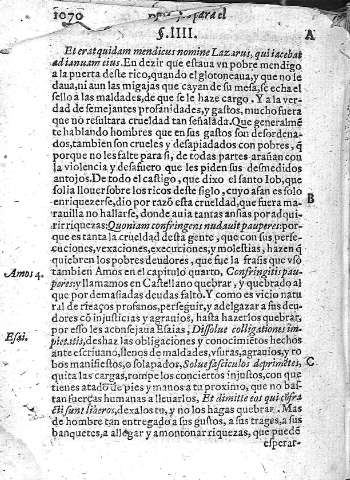 1070
§.IIII. A
Et erat quidam mendicus nomine Lazarus, qui iacebat
ad ianuam eius. En dezir que estaua vn pobre mendigo
a la puerta deste rico, quando el glotoneaua, y que no le
daua, ni aun las migajas que cayan de su mesa, se echa el
sello a las maldades, de que se le haze cargo. Y a la ver-
dad de semejantes profanidades, y gastos, mucho fuera
que no resultara crueldad tan señalada. Que generalmē
te hablando hombres que en sus gastos son desordena-
dos, tambien son crueles y desapiadados con pobres, q̃
porque no les falte para si, de todas partes arañan con
la violencia y desafuero que les piden sus desmedidos
antojos. De todo el castigo, que dixo el santo Iob, que
solia llouer sobre los ricos deste siglo, cuyo afan es solo
enriquezerse, dio por razõ esta crueldad, que fuera ma-
rauilla no hallarse, donde auia tantas ansias por adqui-
rir riquezas: Quoniam confringens nudauit pauperes: por-
que es tanta la crueldad desta gente, que con sus perse-
cuciones, vexaciones, execuciones, y molestias, hazen q̃
quiebren los pobres deudores, que fue la frasis que vsò
tambien Amos en el capitulo quarto, Confringitis pau-
peres: y llamamos en Castellano quebrar, y quebrado al
que por demasiadas deudas faltò. Y como es vicio natu
ral de ricaços profanos, perseguir, y adelgazar a sus deu
dores cõ injusticias y agrauios, hasta hazerlos quebrar,
por esso les aconsejaua Esaias, Dissolue colligationes im-
pietatis, deshaz las obligaciones y conocimiētos hechos
ante escriuano, llenos de maldades, vsuras, agrauios, y ro
bos manifiestos, o solapados, Solue fasciculos deprimētes,
quita las cargas, rompe los conciertos injustos, con que
tienes atado de pies y manos a tu proximo, que no bas-
tan fuerças humanas a lleuarlos, Et dimitte eos qui cõfra
cti sunt liberos, dexalos tu, y no los hagas quebrar. Mas
de hombre tan entregado a sus gustos, a sus trages, a sus
banquetes, a allegar y amontonar riquezas, que puede
esperar-
B
Amos 4.
Esai.
C